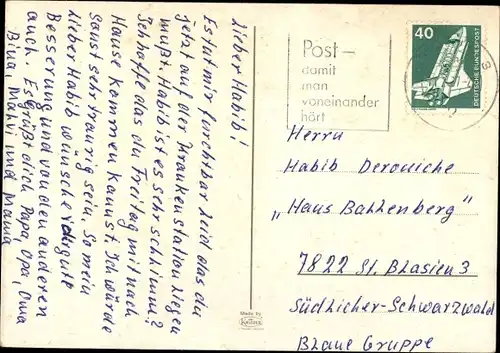 Lieber Habib!
Es tut mir furchtbar leid das du
jetzt auf der Krankenstation liegen
mußt. Habib ist es sehr schlimm?
Ich hoffe das du Freitag mit nach
Hause kommen kannst. Ich würde
sonst sehr traurig sein. So mein
lieber Habib wünsche ich gute
Besserung und von den anderen
auch. Es grüßt dich Papa, Opa, Oma
und Mama
Post –
damit
man
voneinander
hört
40
DEUTSCHE BUNDESPOST
Herrn
Habib Derouiche
„Haus Bahlenberg"
7822 St. Blasien 3
Südlicher-Schwarzwald
Blaue Gruppe
Made by
KRÜGER